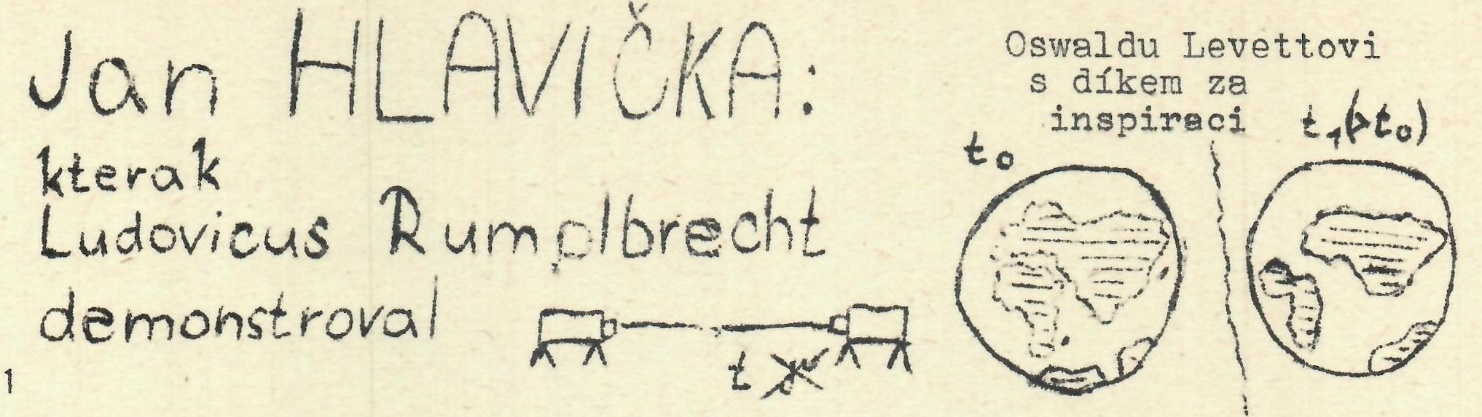 Jan HLAVIČKA:
kterak
Ludovicus Rumplbrecht
demonstroval
Oswaldu Levettovi
s díkem za
inspiraci
t₀
t₁(>t₀)
t
1